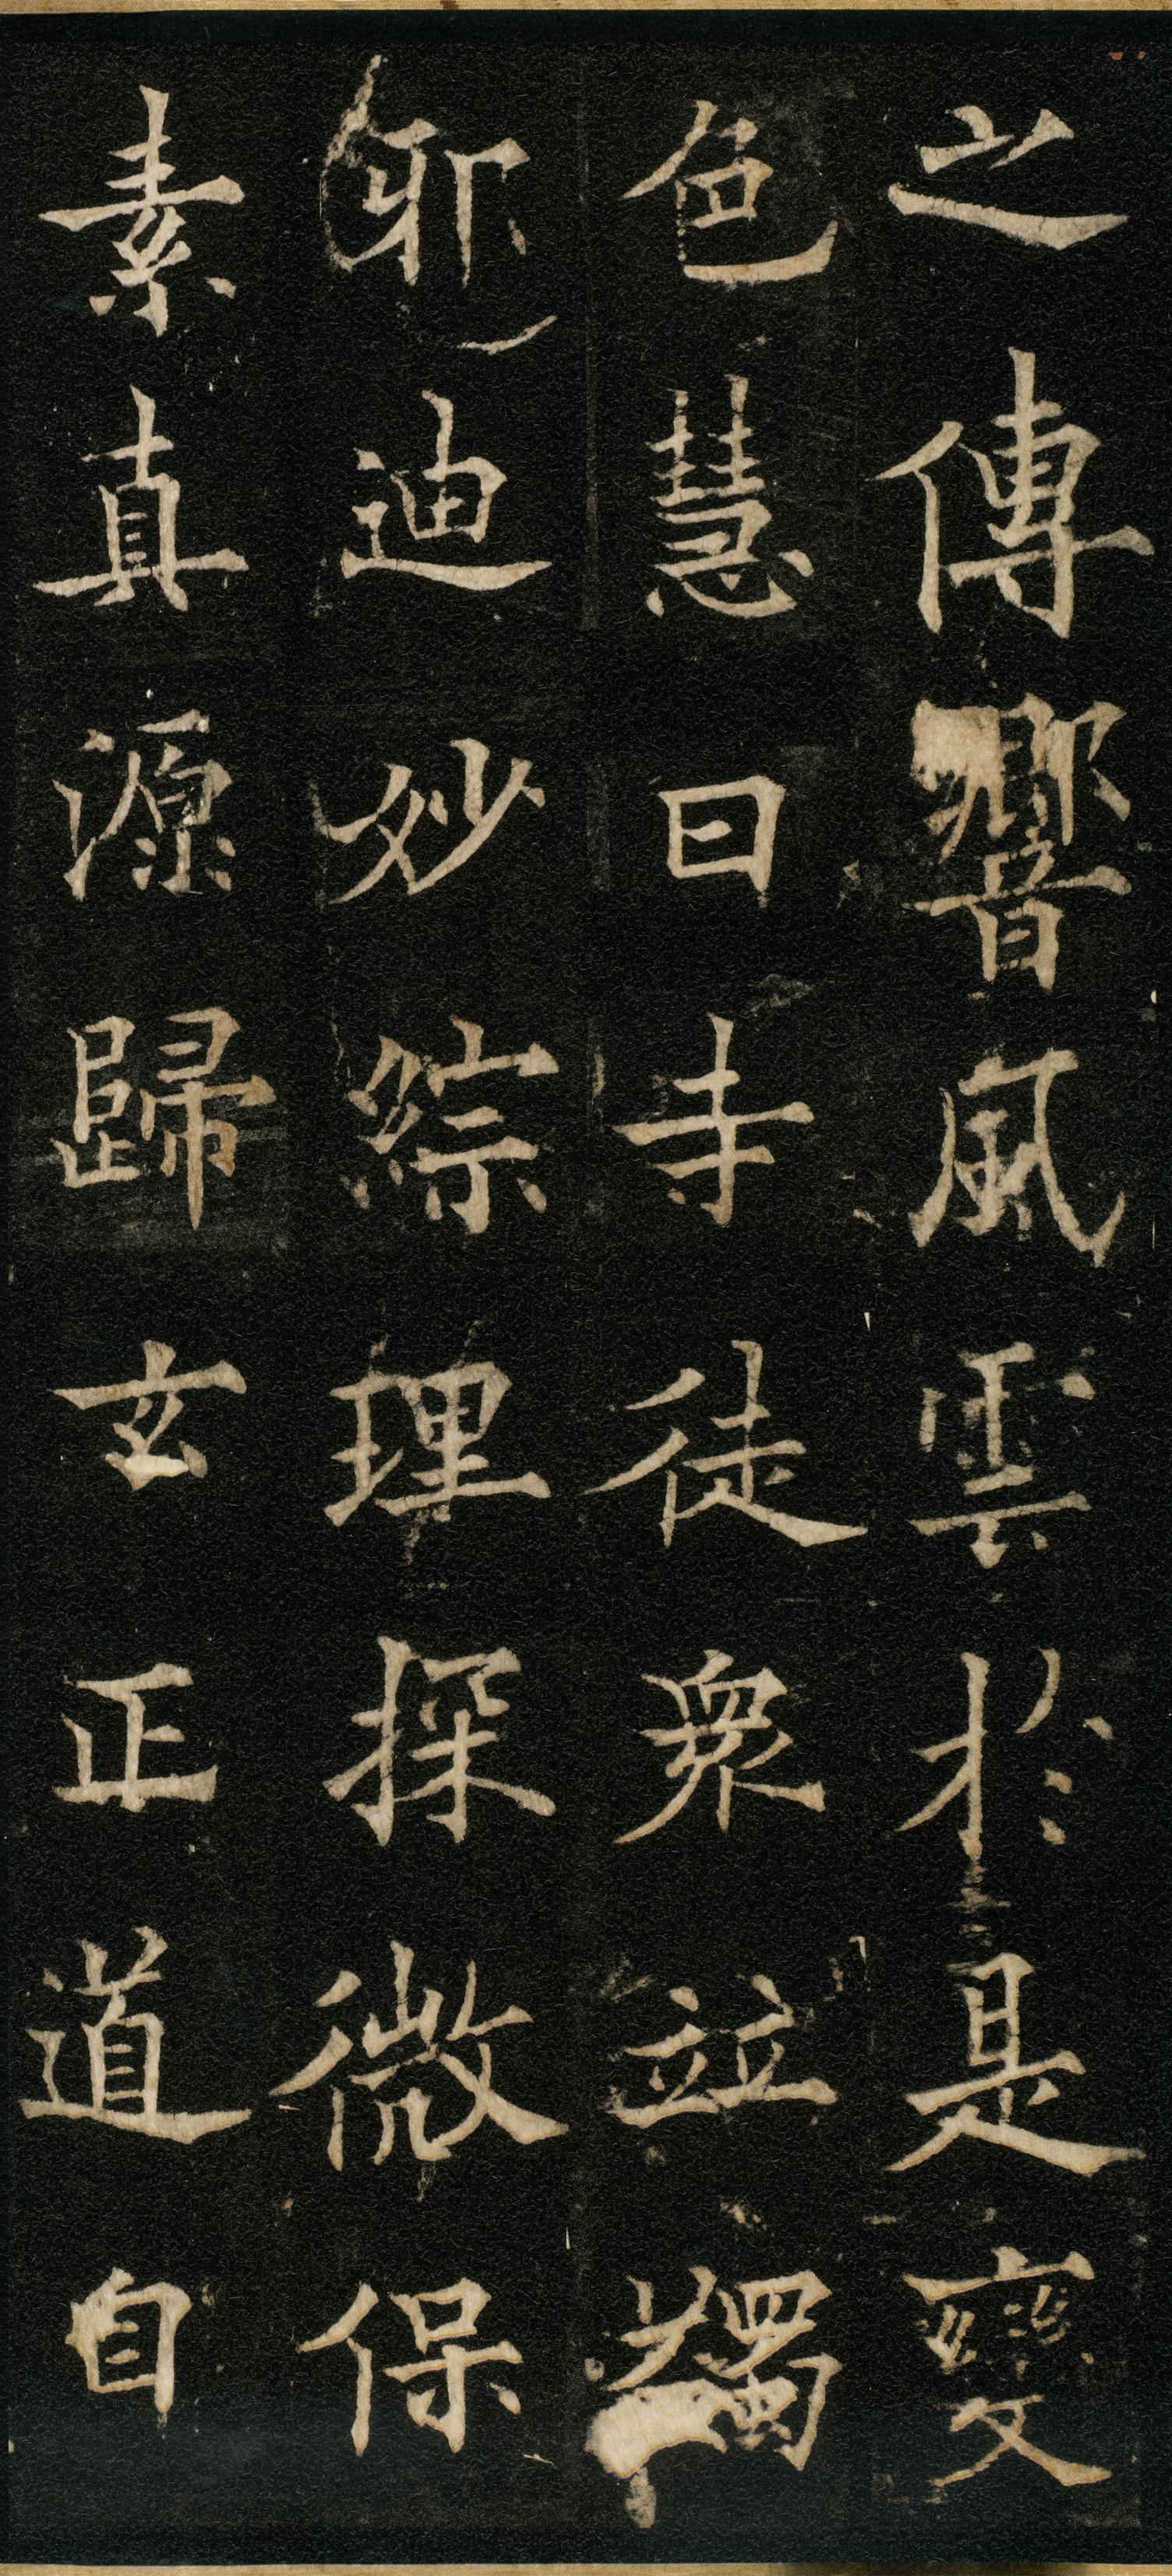 之傳響風雲於是變
色慧日寺徒衆並蠲
邪迪妙綜理探微保
素真源歸玄正道自